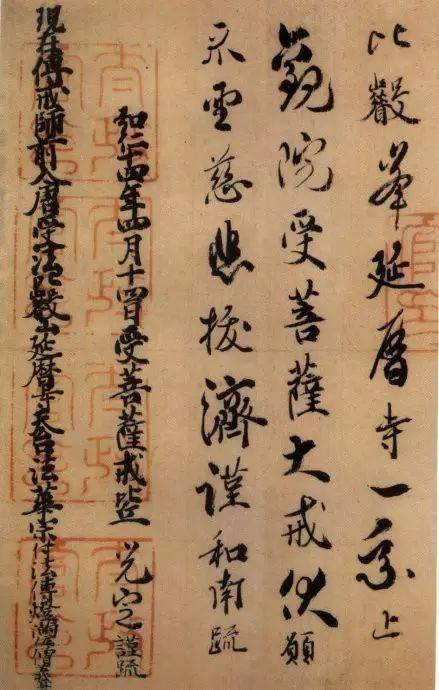 比叡峯延暦寺一乗止
觀院受菩薩大戒伏願
垂慈悲拔濟謹和南疏
弘仁十四年四月十四日受菩薩戒 光定謹疏
現在傳戒師前入唐受法叡山延暦寺天台法華宗付法傳燈滿位僧義